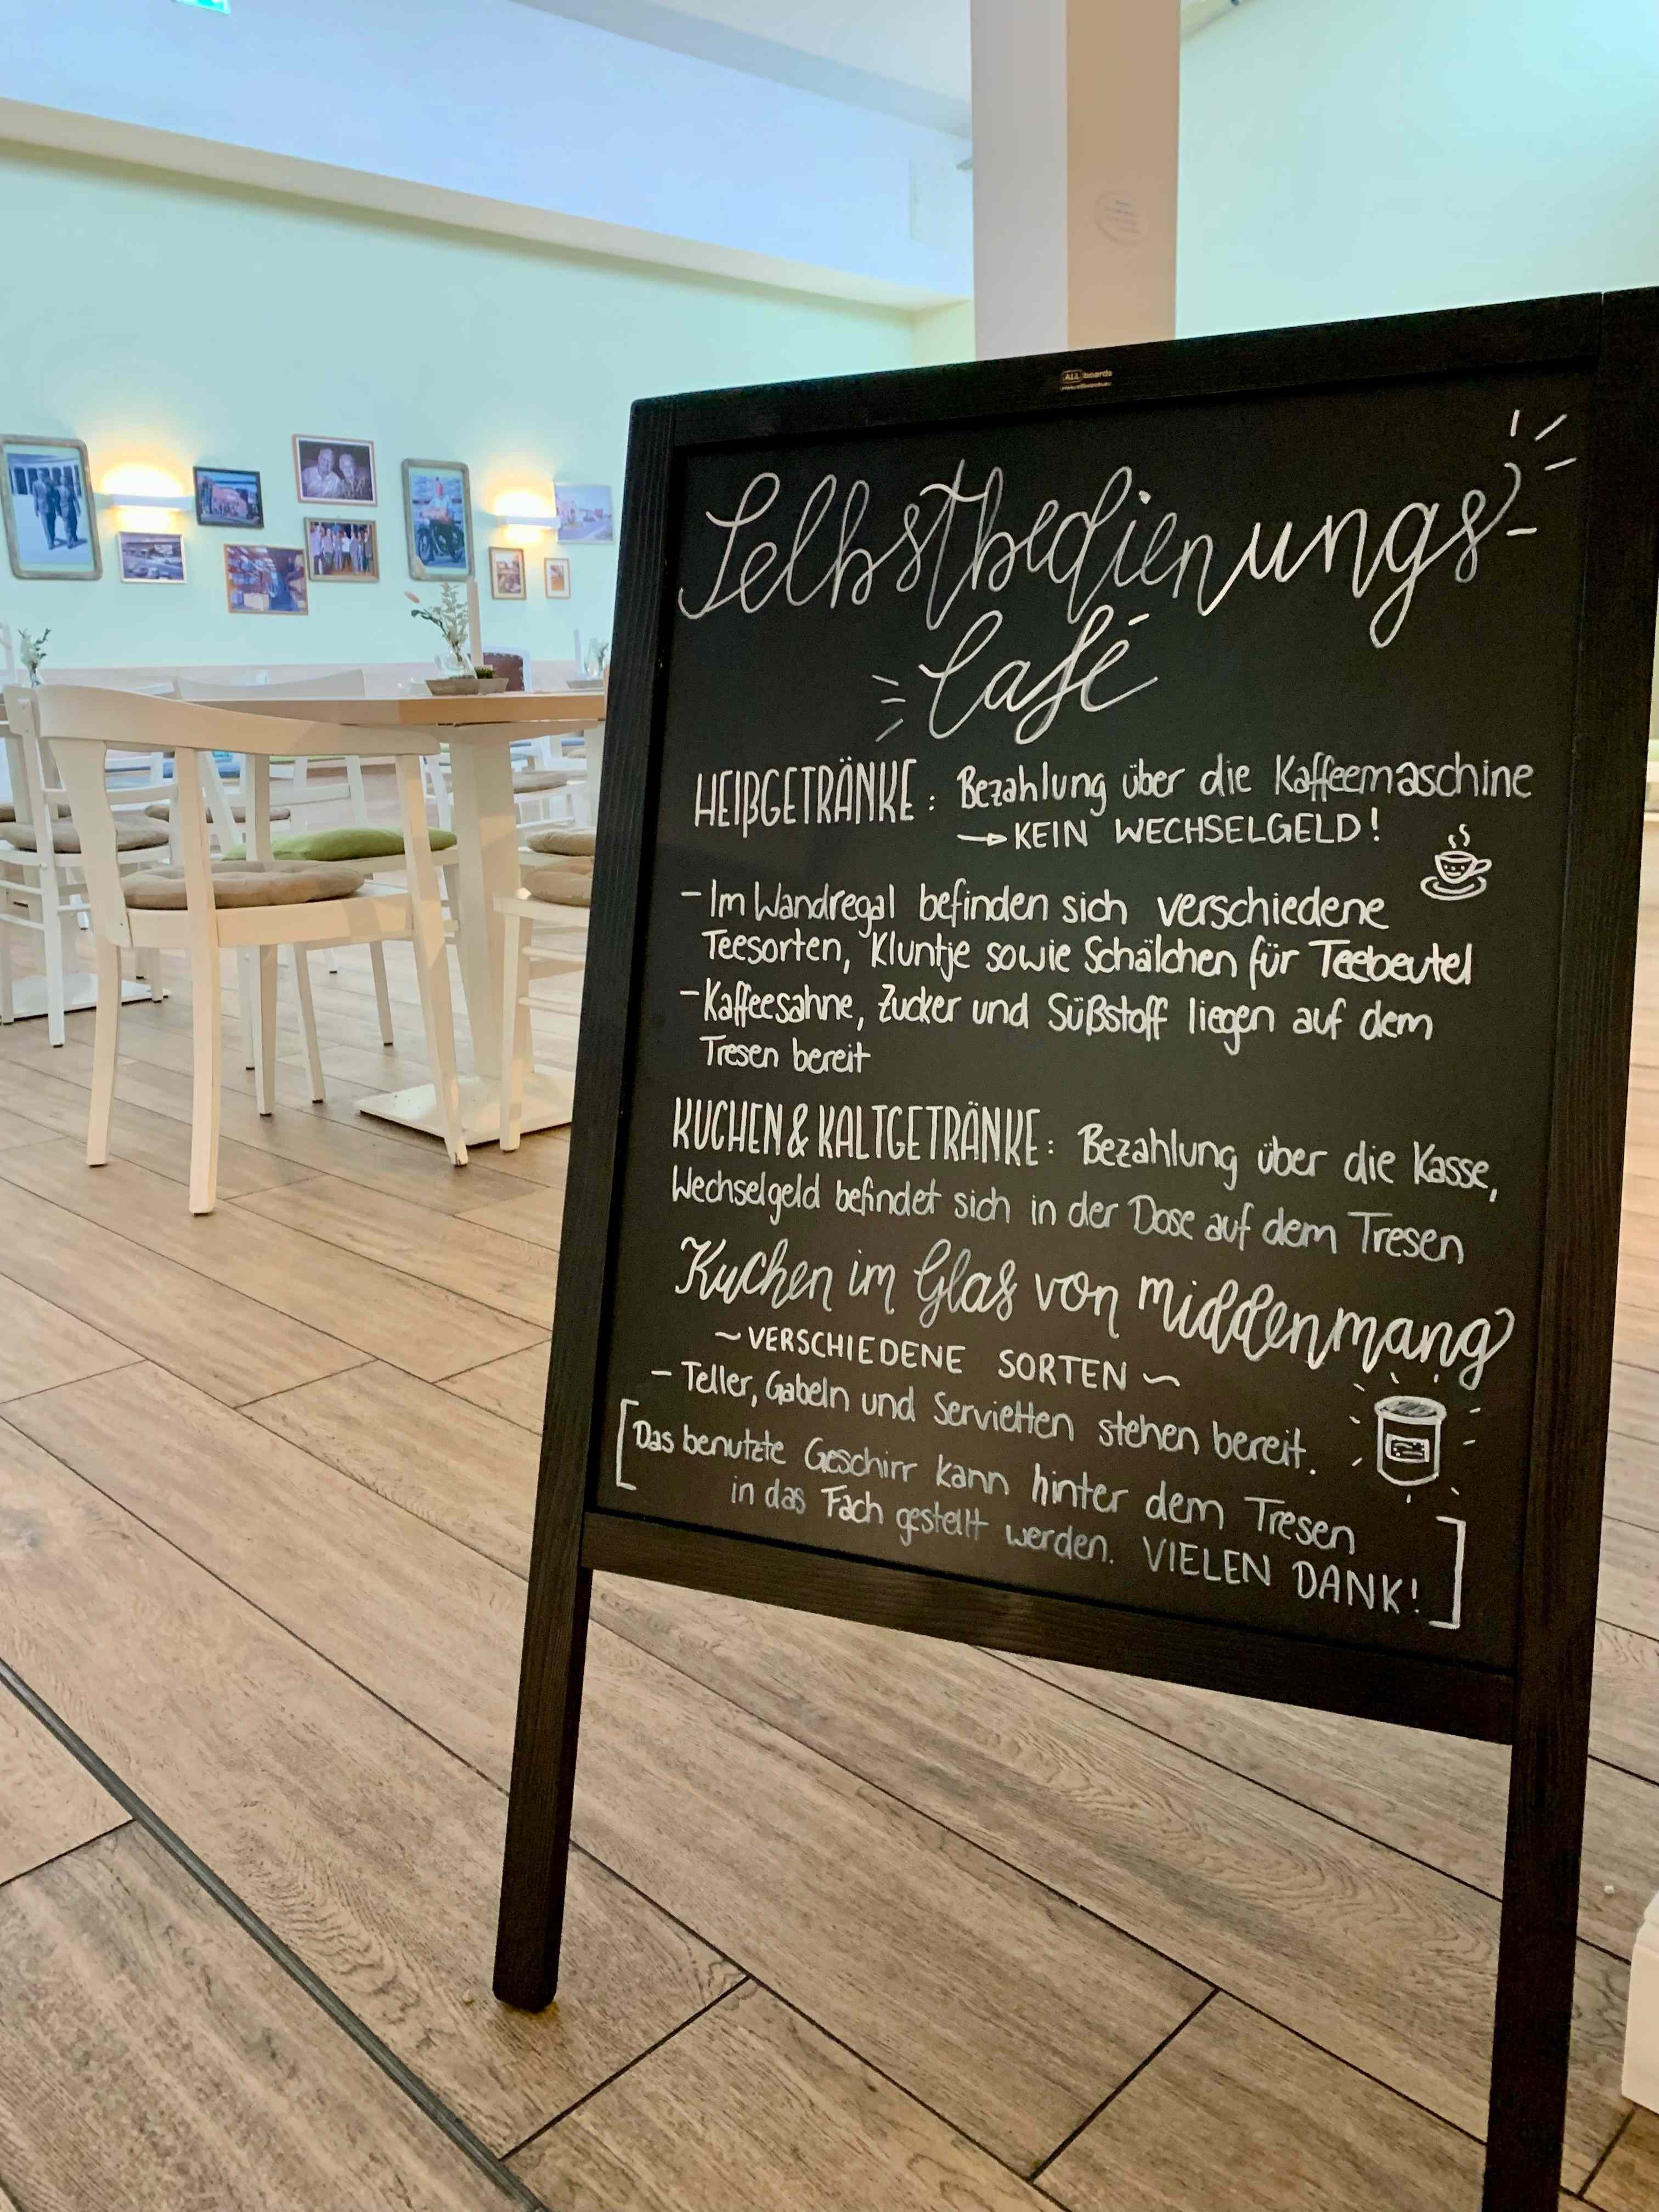 ALL boards
Selbstbedienungs-
Café
HEIßGETRÄNKE: Bezahlung über die Kaffeemaschine
→ KEIN WECHSELGELD!
- Im Wandregal befinden sich verschiedene
Teesorten, Kluntje sowie Schälchen für Teebeutel
- Kaffeesahne, Zucker und Süßstoff liegen auf dem
Tresen bereit
KUCHEN & KALTGETRÄNKE: Bezahlung über die Kasse,
Wechselgeld befindet sich in der Dose auf dem Tresen
Kuchen im Glas von middenmang
~ VERSCHIEDENE SORTEN ~
- Teller, Gabeln und Servietten stehen bereit.
[Das benutzte Geschirr kann hinter dem Tresen
in das Fach gestellt werden. VIELEN DANK!]